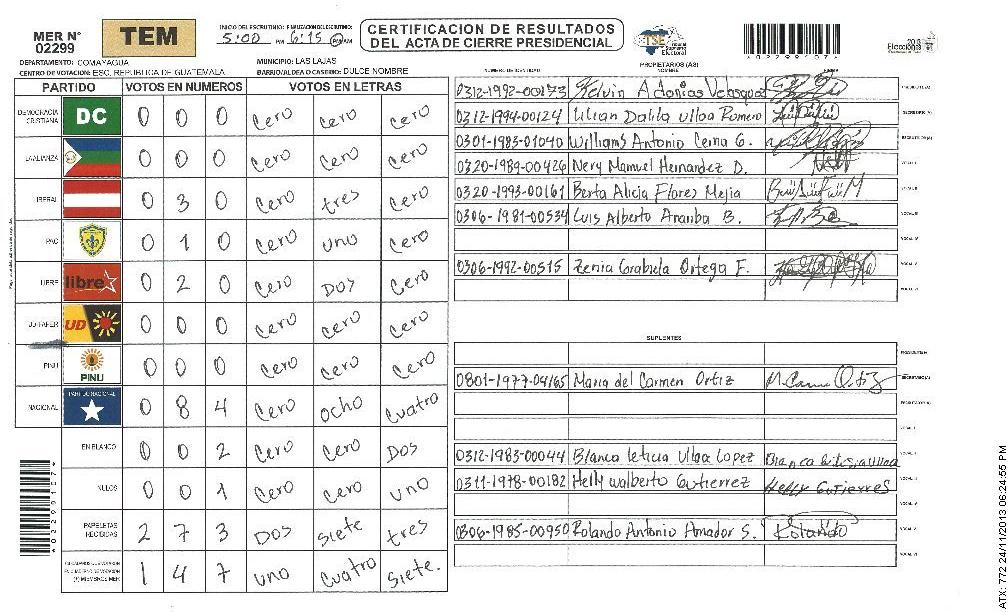 MER N° 02299
TEM
INICIO DEL ESCRUTINIO: FINALIZACION DEL ESCRUTINIO:
5:00 PM 6:15 PM AM
CERTIFICACION DE RESULTADOS
DEL ACTA DE CIERRE PRESIDENCIAL
TSE Tribunal Supremo Electoral
*0229910?*
Elecciones 2013
DEPARTAMENTO: COMAYAGUA
MUNICIPIO: LAS LAJAS
CENTRO DE VOTACION: ESC. REPUBLICA DE GUATEMALA
BARRIO/ALDEA O CASERIO: DULCE NOMBRE
PARTIDO VOTOS EN NUMEROS VOTOS EN LETRAS
DEMOCRACIA CRISTIANA DC 0 0 0 Cero Cero Cero
LA ALIANZA 0 0 0 Cero Cero Cero
LIBERAL 0 3 0 Cero tres Cero
PAC 0 1 0 Cero uno Cero
LIBRE libre 0 2 0 Cero Dos Cero
UD-FAPER UD 0 0 0 Cero Cero Cero
PINU PINU 0 0 0 Cero Cero Cero
NACIONAL PARTIDO NACIONAL 0 8 4 Cero ocho Cuatro
EN BLANCO 0 0 2 Cero Cero Dos
NULOS 0 0 1 Cero Cero uno
PAPELETAS RECIBIDAS 2 7 3 Dos siete tres
1 4 7 uno Cuatro siete.
PROPIETARIOS (AS)
NUMERO DE IDENTIDAD NOMBRE FIRMA
0312-1992-00173 Kelvin Adonias Velasquez PRESIDENTE (A)
0312-1994-00124 Lilian Dalila Ulloa Romero SECRETARIO (A)
0301-1983-01040 Williams Antonio Cerna G. ESCRUTADOR (A)
0320-1989-00426 Nery Manuel Hernandez D. VOCAL I
0320-1993-00161 Berta Alicia Flores Mejia VOCAL II
0306-1981-00534 Luis Alberto Ananba B. VOCAL III
VOCAL IV
0306-1992-00515 Zenia Grabiela Ortega F. VOCAL V
VOCAL VI
SUPLENTES
PRESIDENTE (A)
0801-1977-04165 Maria del Carmen Ortiz M. Carmen Ortiz SECRETARIO (A)
ESCRUTADOR (A)
VOCAL I
0312-1983-00044 Blanca leticia Ulloa Lopez Blanca leticia ulloa VOCAL II
0311-1978-00182 Helly walberto Gutierrez Helly Gutierres VOCAL III
VOCAL IV
0806-1985-00950 Rolando Antonio Amador S. Rolando VOCAL V
VOCAL VI
ATX: 772 24/11/2013 06:24:55 PM